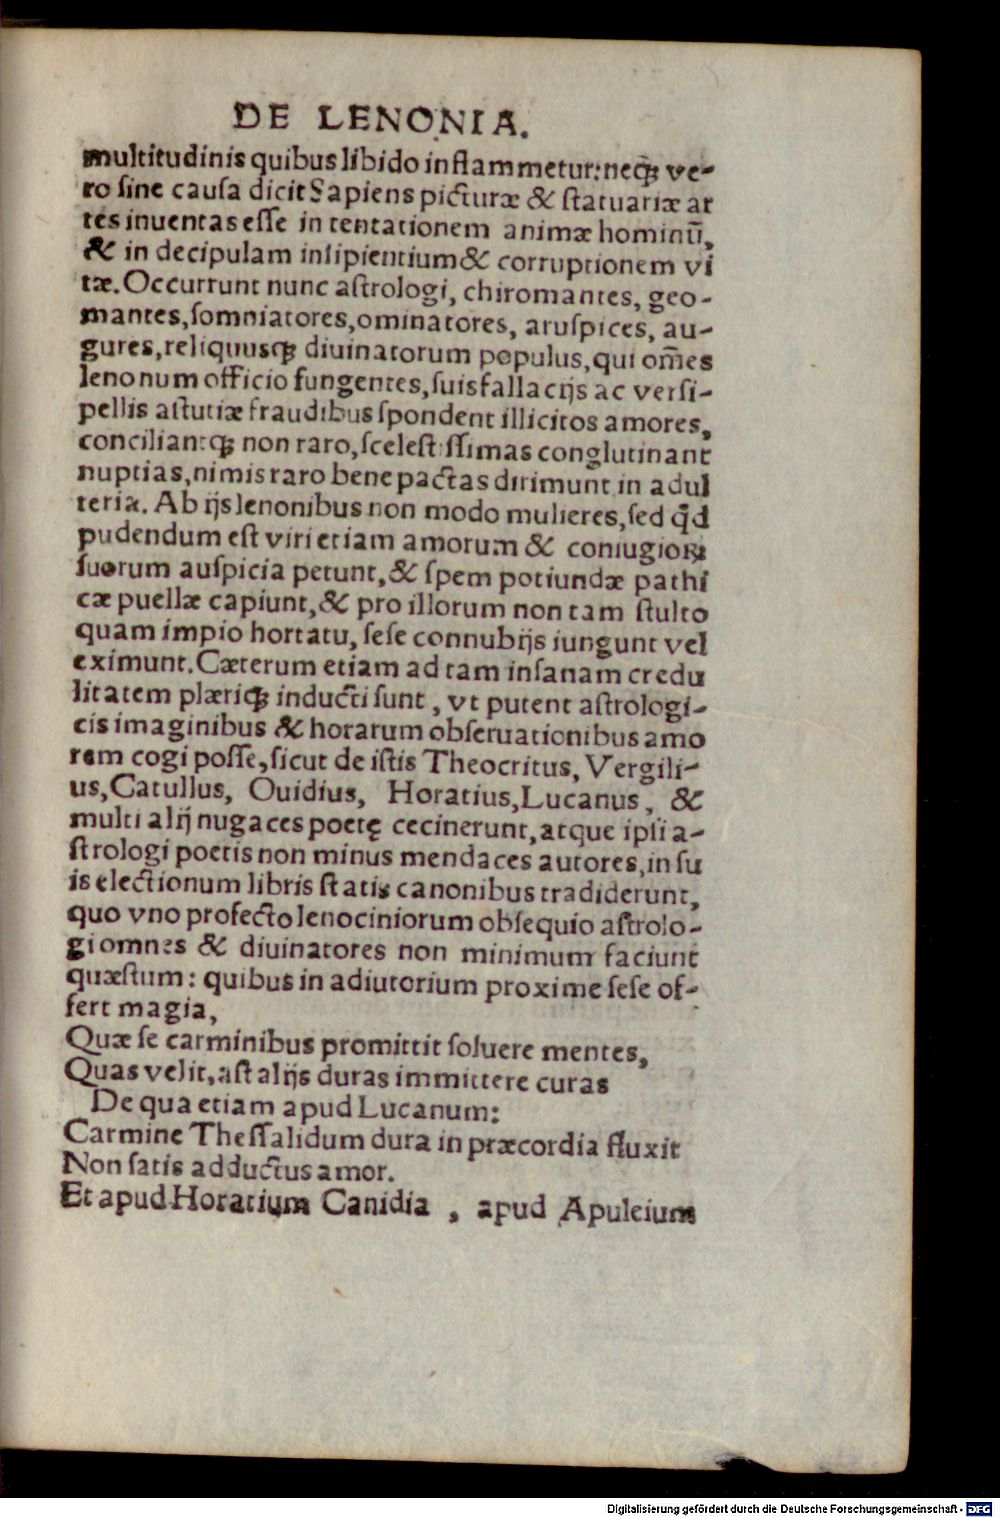 DE LENONIA.
multitudinis quibus libido inflammetur: neqꝫ ve-
ro sine causa dicit Sapiens picturæ & statuariæ ar
tes inuentas esse in tentationem animæ hominū,
& in decipulam insipientium & corruptionem vi
tæ. Occurrunt nunc astrologi, chiromantes, geo-
mantes, somniatores, ominatores, aruspices, au-
gures, reliquusqꝫ diuinatorum populus, qui om̃es
lenonum officio fungentes, suis fallacijs ac versi-
pellis astutiæ fraudibus spondent illicitos amores,
conciliantqꝫ non raro, scelestissimas conglutinant
nuptias, nimis raro bene pactas dirimunt in adul
teria. Ab ijs lenonibus non modo mulieres, sed qd̃
pudendum est viri etiam amorum & coniugioꝝ
suorum auspicia petunt, & spem potiundæ pathi
cæ puellæ capiunt, & pro illorum non tam stulto
quam impio hortatu, sese connubijs iungunt vel
eximunt. Cæterum etiam ad tam insanam credu
litatem plæriqꝫ inducti sunt, vt putent astrologi-
cis imaginibus & horarum obseruationibus amo
rem cogi posse, sicut de istis Theocritus, Vergili-
us, Catullus, Ouidius, Horatius, Lucanus, &
multi alij nugaces poetę cecinerunt, atque ipsi a-
strologi poetis non minus mendaces autores, in su
is electionum libris statis canonibus tradiderunt,
quo vno profecto lenociniorum obsequio astrolo-
gi omnes & diuinatores non minimum faciunt
quæstum: quibus in adiutorium proxime sese of-
fert magia,
Quæ se carminibus promittit soluere mentes,
Quas velit, ast alijs duras immittere curas
De qua etiam apud Lucanum:
Carmine Thessalidum dura in præcordia fluxit
Non satis adductus amor.
Et apud Horatium Canidia, apud Apuleium
Digitalisierung gefördert durch die Deutsche Forschungsgemeinschaft - DFG